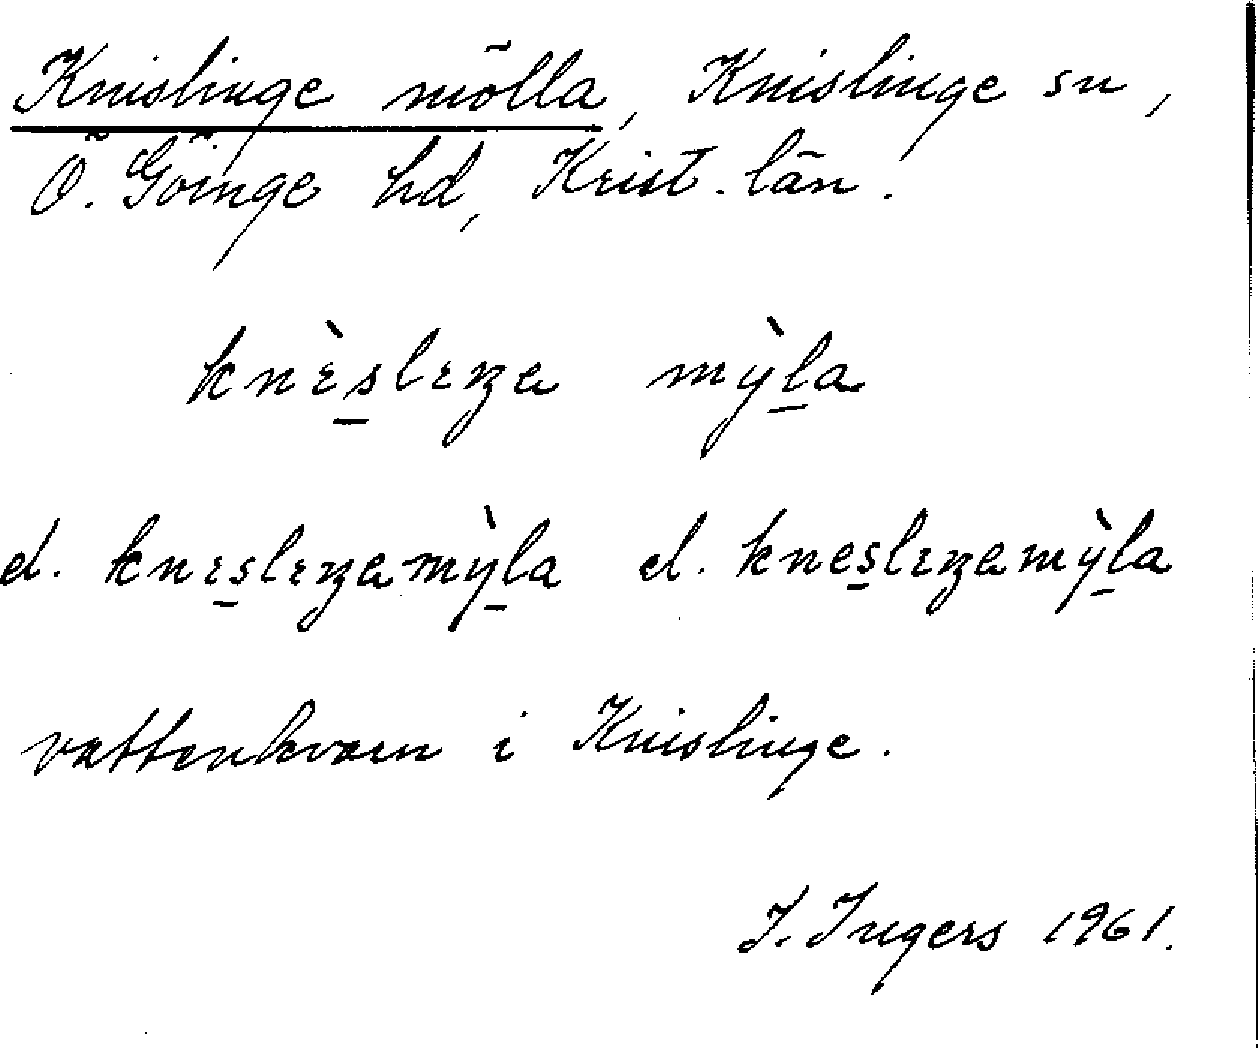 Knislinge mölla, Knislinge sn,
Ö. Göinge hd, Krist. län.
knɪ̀s̲lɪŋa mỳl̲a
d. knɪs̲lɪŋamỳl̲a d. knes̲lɪŋamỳl̲a
vattenkvarn i Knislinge.
I. Ingers 1961.